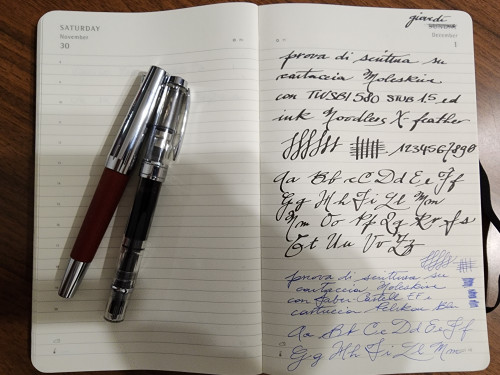 SATURDAY
November
30
giovedì
December
1
prova di scittura su
cartaccia Moleskine
con TWSBI 580 STUB 1.5 ed
ink Noodlers X feather
1234567890
Aa Bb Cc Dd Ee Ff
Gg Hh Ii Ll Mm
Nn Oo Pp Qq Rr Ss
Tt Uu Vv Zz
prova di scrittura su
cartaccia Moleskine
con Faber-Castell EF e
cartuccia Pelikan Blu
Aa Bb Cc Dd Ee Ff
Gg Hh Ii Ll Mm